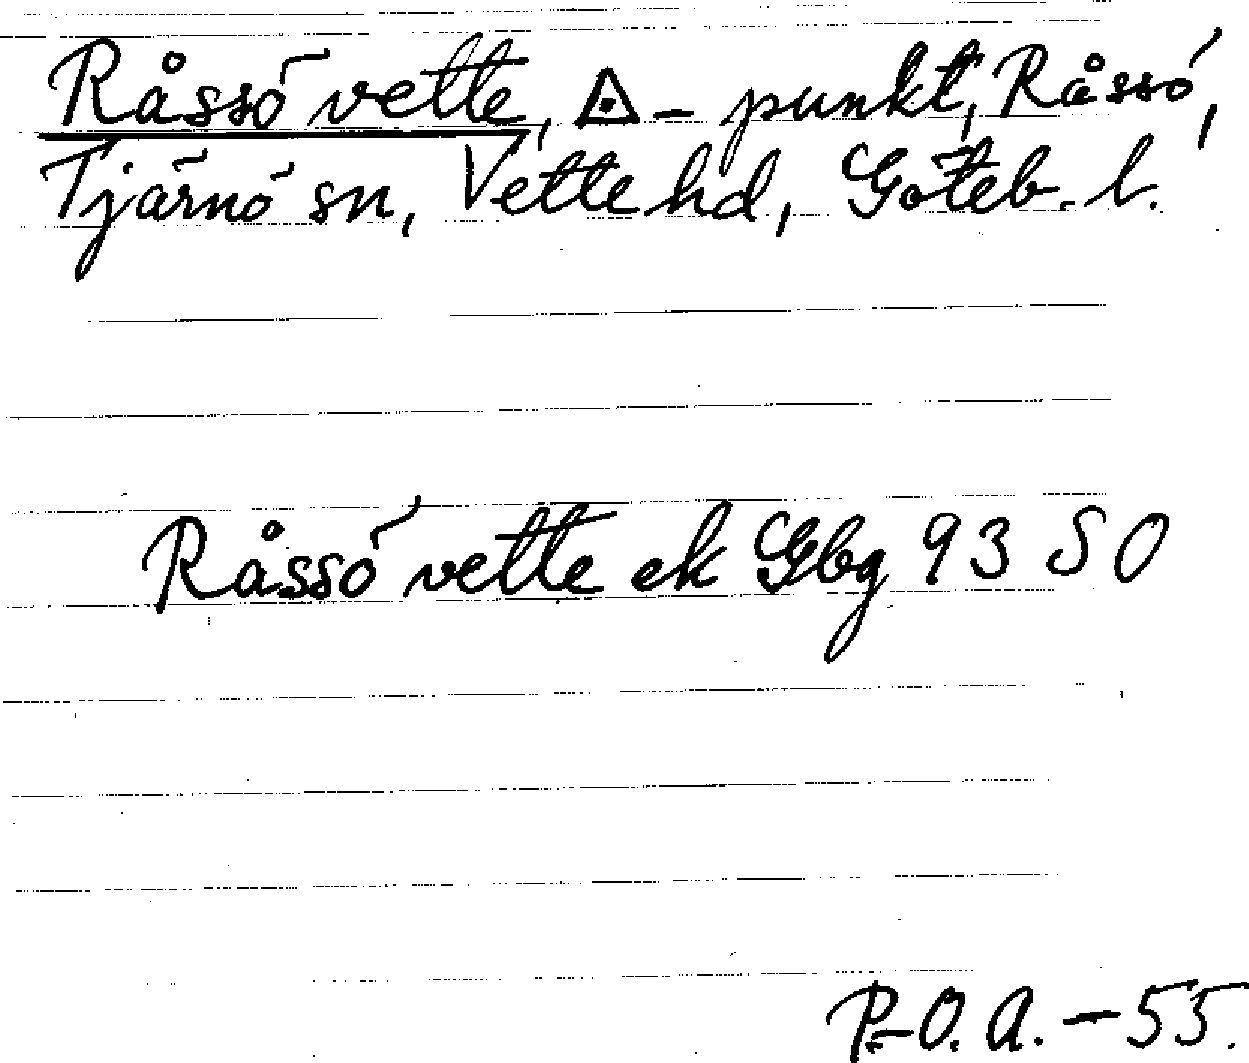 Råssö vette, ⟁-punkt, Råssö,
Tjärnö sn, Vette hd, Göteb. l.
Råssö vette ek Gbg 93 SO
P.-O. A. - 55.